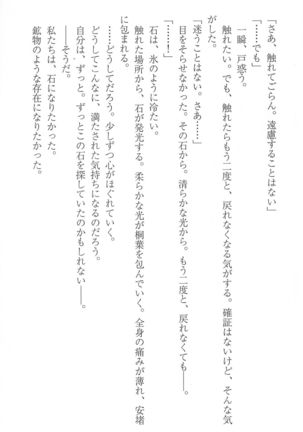 「さあ、触れてごらん。遠慮することはない」
「……でも」
一瞬、戸惑う。
触れたい。でも、触れたらもう二度と、戻れなくなる気がする。確証はないけど、そんな気
がした。
「迷うことはない。さあ……」
「……！」
目をそらせなかった。その石から。清らかな光から。もう二度と、戻れなくても――。
石は、氷のように冷たい。
触れた場所から、石が発光する。柔らかな光が桐葉を包んでいく。全身の痛みが薄れ、安堵
に包まれる。
……どうしてだろう。少しずつ心がほぐれていく。
どうしてこんなに、満たされた気持ちになるのだろう。
自分は、ずっと。ずっとこの石を探していたのかもしれない――。
――そうだ。
私たちは、石になりたかった。
鉱物のような存在になりたかった。